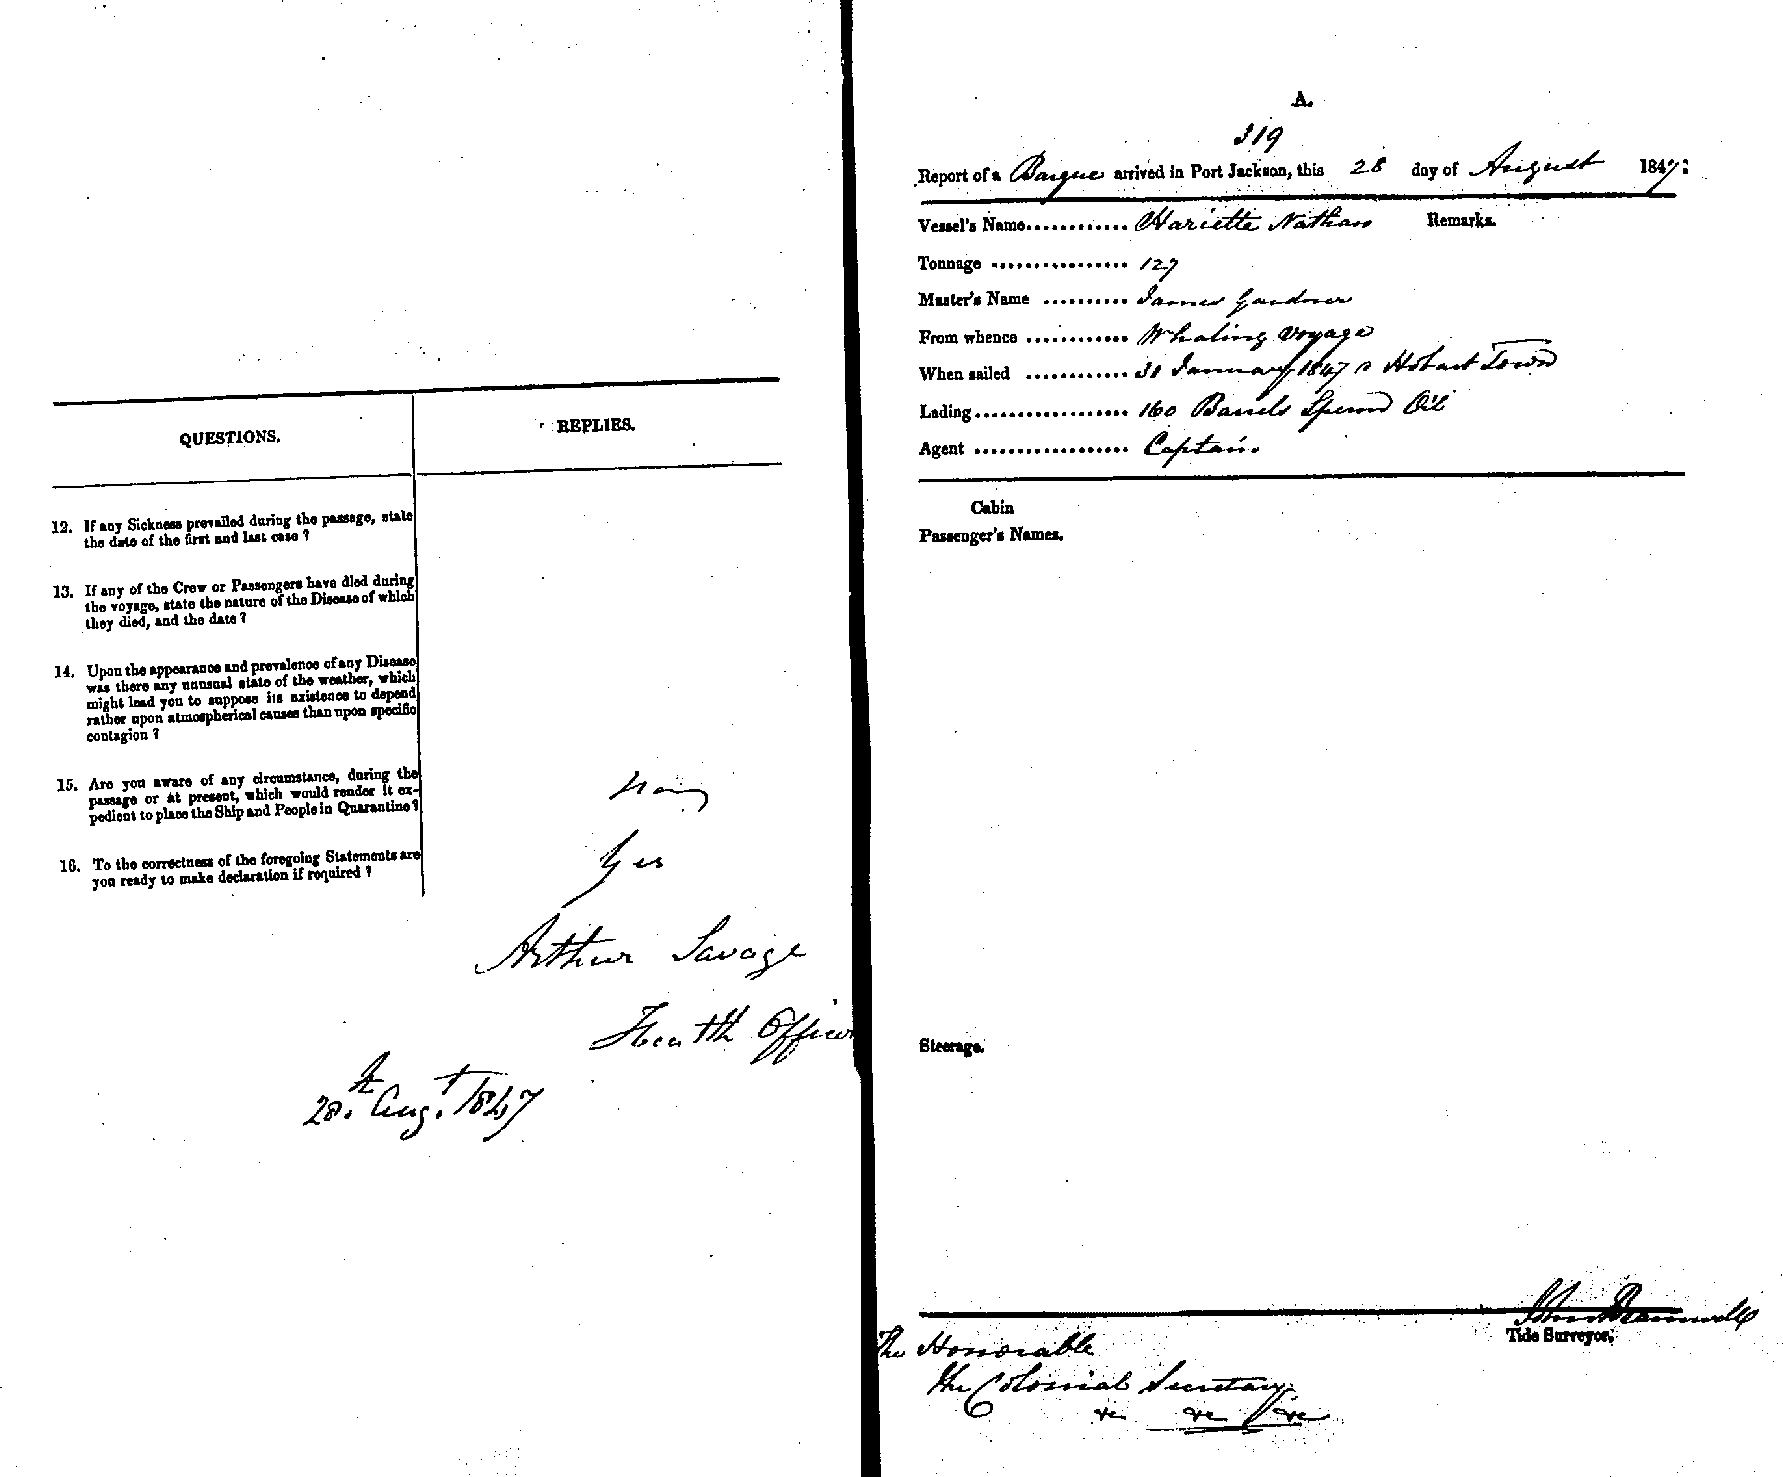 QUESTIONS.
REPLIES.
12. If any Sickness prevailed during the passage, state
the date of the first and last case ?
13. If any of the Crew or Passengers have died during
the voyage, state the nature of the Disease of which
they died, and the date ?
14. Upon the appearance and prevalence of any Disease
was there any unusual state of the weather, which
might lead you to suppose its existence to depend
rather upon atmospherical causes than upon specific
contagion ?
15. Are you aware of any circumstance, during the
passage or at present, which would render it ex-
pedient to place the Ship and People in Quarantine ?
16. To the correctness of the foregoing Statements are
you ready to make declaration if required ?
Yes
Arthur Savage
Health Officer
28.th Aug.t 1847
A.
319
Report of a Barque arrived in Port Jackson, this 28 day of August 1847:
Vessel's Name............ Hariette Nathan Remarks.
Tonnage ................ 127
Master's Name .......... James Gardner
From whence ............ Whaling Voyage
When sailed ............ 31 January 1847 Hobart Town
Lading.................. 160 Barrels Sperm Oil
Agent .................. Captain
Cabin
Passenger's Names.
Steerage.
John Bramwell
Tide Surveyor.
The Honorable
the Colonial Secretary
&c &c &c